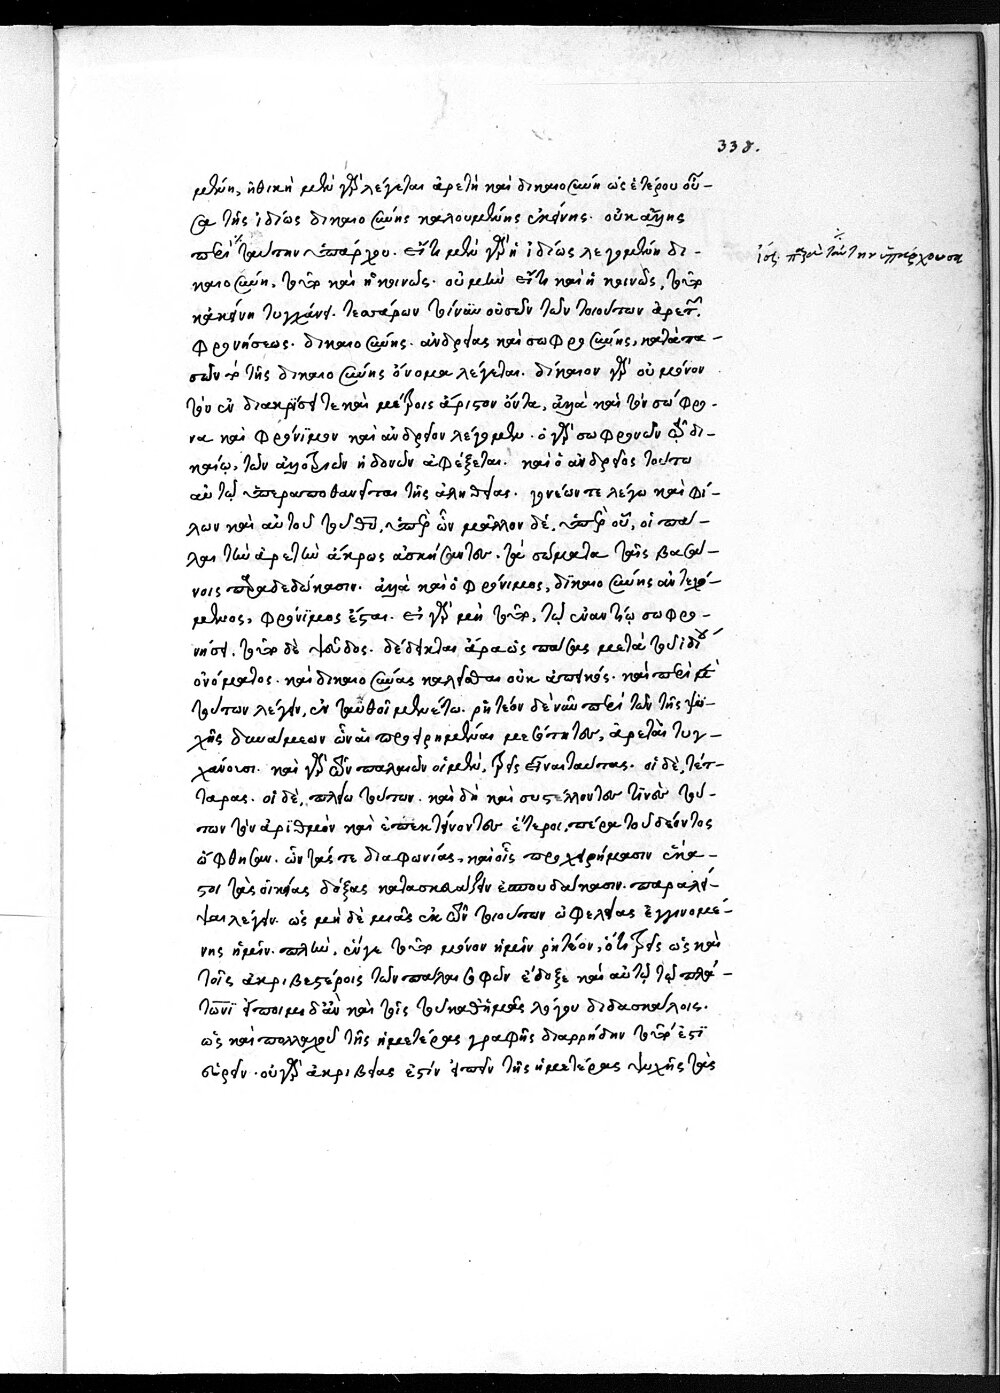 338.
μένη, ἠθικὴ μὲν γὰρ λέγεται ἀρετὴ καὶ δικαιοσύνη ὡς ἑτέρου οὖ-
σα τῆς ἰδίως δικαιοσύνης καλουμένης ἐκείνης. οὐκ ἄλλης
περὶ ταύτην ὑπάρχου. ἔστι μὲν γὰρ ἡ ἰδίως λεγομένη δι-
ἴσ. παρὰ ταύτην ὑπάρχουσα
καιοσύνη, τοῦτο καὶ ἡ κοινῶς. οὐ μὴν ἔστι καὶ ἡ κοινῶς, τοῦτο
κἀκείνη τυγχάνει. τεσσάρων τοίνυν οὐσῶν τῶν τοιούτων ἀρετῶν.
φρονήσεως. δικαιοσύνης. ἀνδρείας καὶ σωφροσύνης, κατὰ πα-
σῶν τὸ τῆς δικαιοσύνης ὄνομα λέγεται. δίκαιον γὰρ οὐ μόνον
τὸν ἐν διακρίσει τε καὶ μείζοις ἄριστον ὄντα, ἀλλὰ καὶ τὸν σώφρο-
να καὶ φρόνιμον καὶ ἀνδρεῖον λέγομεν. ὁ γὰρ σωφρονῶν τῷ δι-
καίῳ, τῶν ἀλλοτρίων ἡδονῶν ἀφέξεται. καὶ ὁ ἀνδρεῖος τούτῳ
αὐτῷ ὑπεραποθανεῖται τῆς ἀληθείας. γονέων τε λέγω καὶ φί-
λων καὶ αὐτοῦ τοῦ θυ, ὑπὲρ ὧν μᾶλλον δέ, ὑπὲρ οὗ, οἱ πά-
λαι τῶν ἀρετῶν ἄκρως ἀσκήσαντες. τὰ σώματα ταῖς βασά-
νοις παραδεδώκασιν. ἀλλὰ καὶ ὁ φρόνιμος, δικαιοσύνης ἀντεχό-
μενος, φρόνιμος ἔσται. εἰ γὰρ μὴ τοῦτο, τῷ ἐναντίῳ σωφρο-
νήσει. τοῦτο δὲ ψεῦδος. δέδεικται ἄρα ὡς πάσας μετὰ τοῦ ἰδίου
ὀνόματος. καὶ δικαιοσύνας καλεῖσθαι οὐκ ἀπεικός. καὶ περὶ μὲν
τούτων λέγειν, ἐνταῦθοῖ μενέτω. ῥητέον δὲ νῦν περὶ τῶν τῆς ψυ-
χῆς δυνάμεων ὧν αἱ προειρημέναι μεσότητες, ἀρεταὶ τυγ-
χάνουσι. καὶ γὰρ τῶν παλαιῶν οἱ μὲν, τρεῖς εἶναι ταύτας. οἱ δὲ, τέτ-
ταρας. οἱ δὲ, πλείω τούτων. καὶ δὴ καὶ συστέλλοντές τινες τού-
των τὸν ἀριθμὸν καὶ ἐπεκτείνοντες ἕτεροι, πέρα τοῦ δέοντος
ὤφθησαν. ὧν τάς τε διαφωνίας, καὶ οἷς προχειρήμασιν ἕκα-
στοι τὰς οἰκείας δόξας κατασκευάζειν ἐσπουδάκασιν. παραλεί-
ψαι λέγειν. ὡς μηδὲ μιᾶς ἐκ τῶν τοιούτων ὠφελείας ἐγγινομέ-
νης ἡμῖν. πλὴν, εὖγε τοῦτο μόνον ἡμῖν ῥητέον, ὅτι τρεῖς ὡς καὶ
τοῖς ἀκριβεστέροις τῶν παλαι σοφῶν ἔδοξε καὶ αὐτῷ τῷ πλά-
τωνι εἴποιμι δἂν καὶ τοῖς τοῦ καθ' ἡμᾶς λόγου διδασκάλοις.
ὡς καὶ πολλαχοῦ τῆς ἡμετέρας γραφῆς διαρρήδην τοῦτο ἐστὶ
εὑρεῖν. οὐ γὰρ ἀκριβείας ἐστὶν εἰπεῖν τῆς ἡμετέρας ψυχῆς τὰς